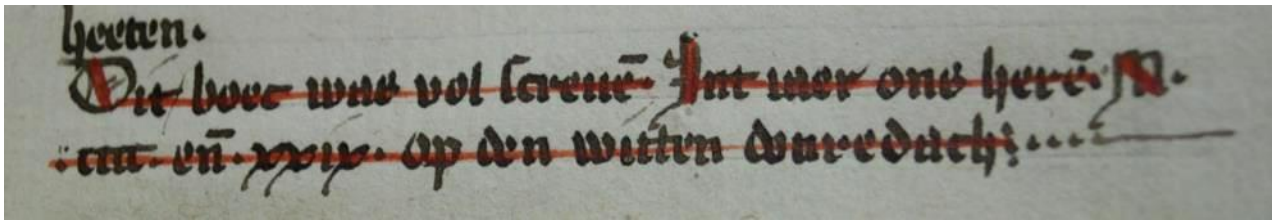 heeten.
Dit boec was vol screuē. Int iaer ons herē. M.
.cccc. en̄. xxix. op den witten donredach:...